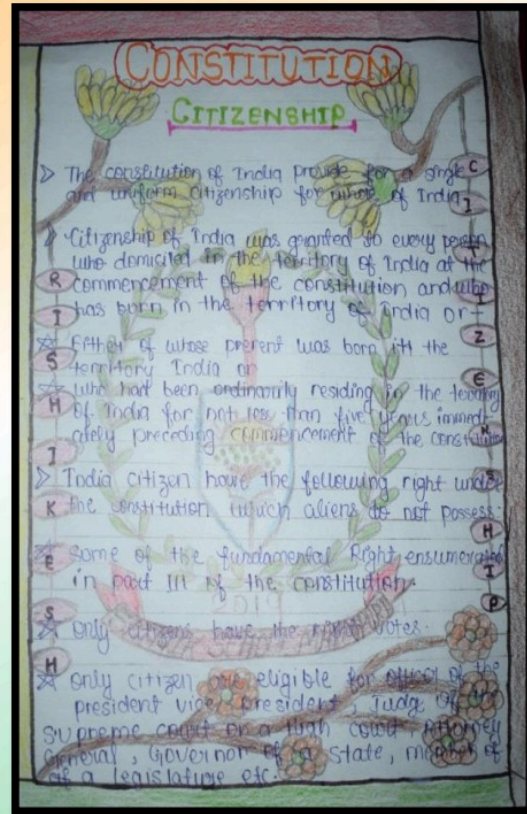 CONSTITUTION
CITIZENSHIP
The constitution of India provide for a single
and uniform citizenship for whole of India
Citizenship of India was granted to every person
who domiciled in the territory of India at the
commencement of the constitution and who
has born in the territory of India or
Either of whose prerent was born in the
territory India or
who had been ordinarily residing in the
of India for not less than five years immed-
iately preceding commencement of the constitution
India citizen have the following right under
the constitution which aliens do not possess:
Some of the fundamental Right ensumerated
in part III of the constitution.
only citizens have the right votes.
only citizen are eligible for office of the
president vice president, Judge of the
supreme court or a high court Attorney
General, Governor of a State, member of
of a legislature etc.
RISHIKESH
CITIZENSHIP
2019